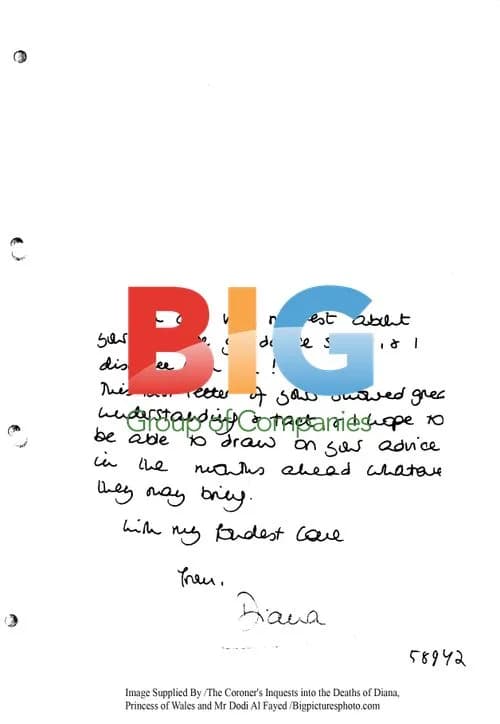 est about
your & I
This letter of yours showed great
understanding & tact & I hope to
be able to draw on your advice
in the months ahead whatever
they may bring.
With my fondest love
from,
Diana
58942
BIG
Group of Companies
Image Supplied By /The Coroner's Inquests into the Deaths of Diana,
Princess of Wales and Mr Dodi Al Fayed /Bigpicturesphoto.com